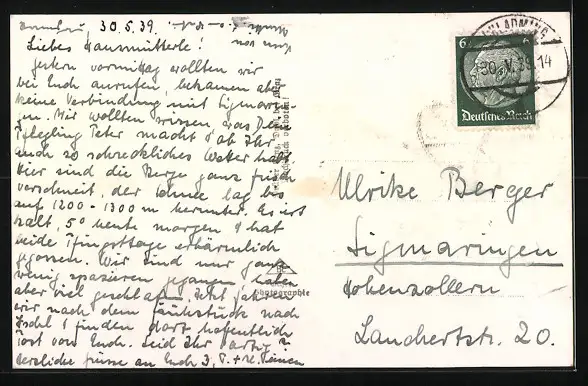 30.5.39.
Liebes Hausmütterle!
gestern vormittag wollten wir
bei Euch anrufen, bekamen aber
keine Verbindung mit Sigmarin-
gen. Wir wollten wissen was Dein
Pflegling Peter macht & ob Ihr
auch so schreckliches Wetter habt
hier sind die Berge ganz frisch
verschneit, der Schnee lag bis
auf 1200 - 1300 m herunter. Es ist
kalt, 5° heute morgen & hat
beide Pfingsttage erbärmlich
gegossen. Wir sind nur ganz
wenig spazieren gegangen haben
aber viel geschlafen. Jetzt
wir nach dem Frühstück nach
Ischl & finden dort hoffentlich
Post von Euch. Seid Ihr artig?
Herzliche Grüsse an Euch 3,
6
SCHLADMING
30.V.39.14
Deutsches Reich
Ulrike Berger
Sigmaringen
Hohenzollern
Landhertstr. 20.